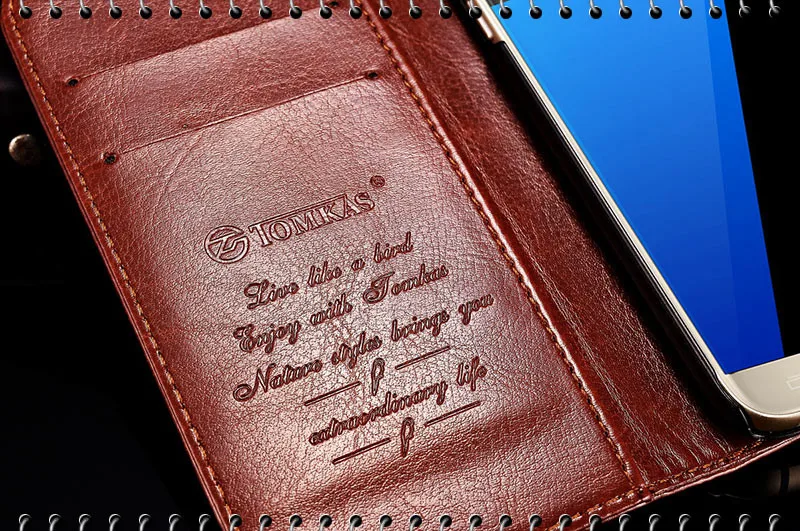 TOMKAS®
Live like a bird
Enjoy with Tomkas
Nature styles brings you
extraordinary life